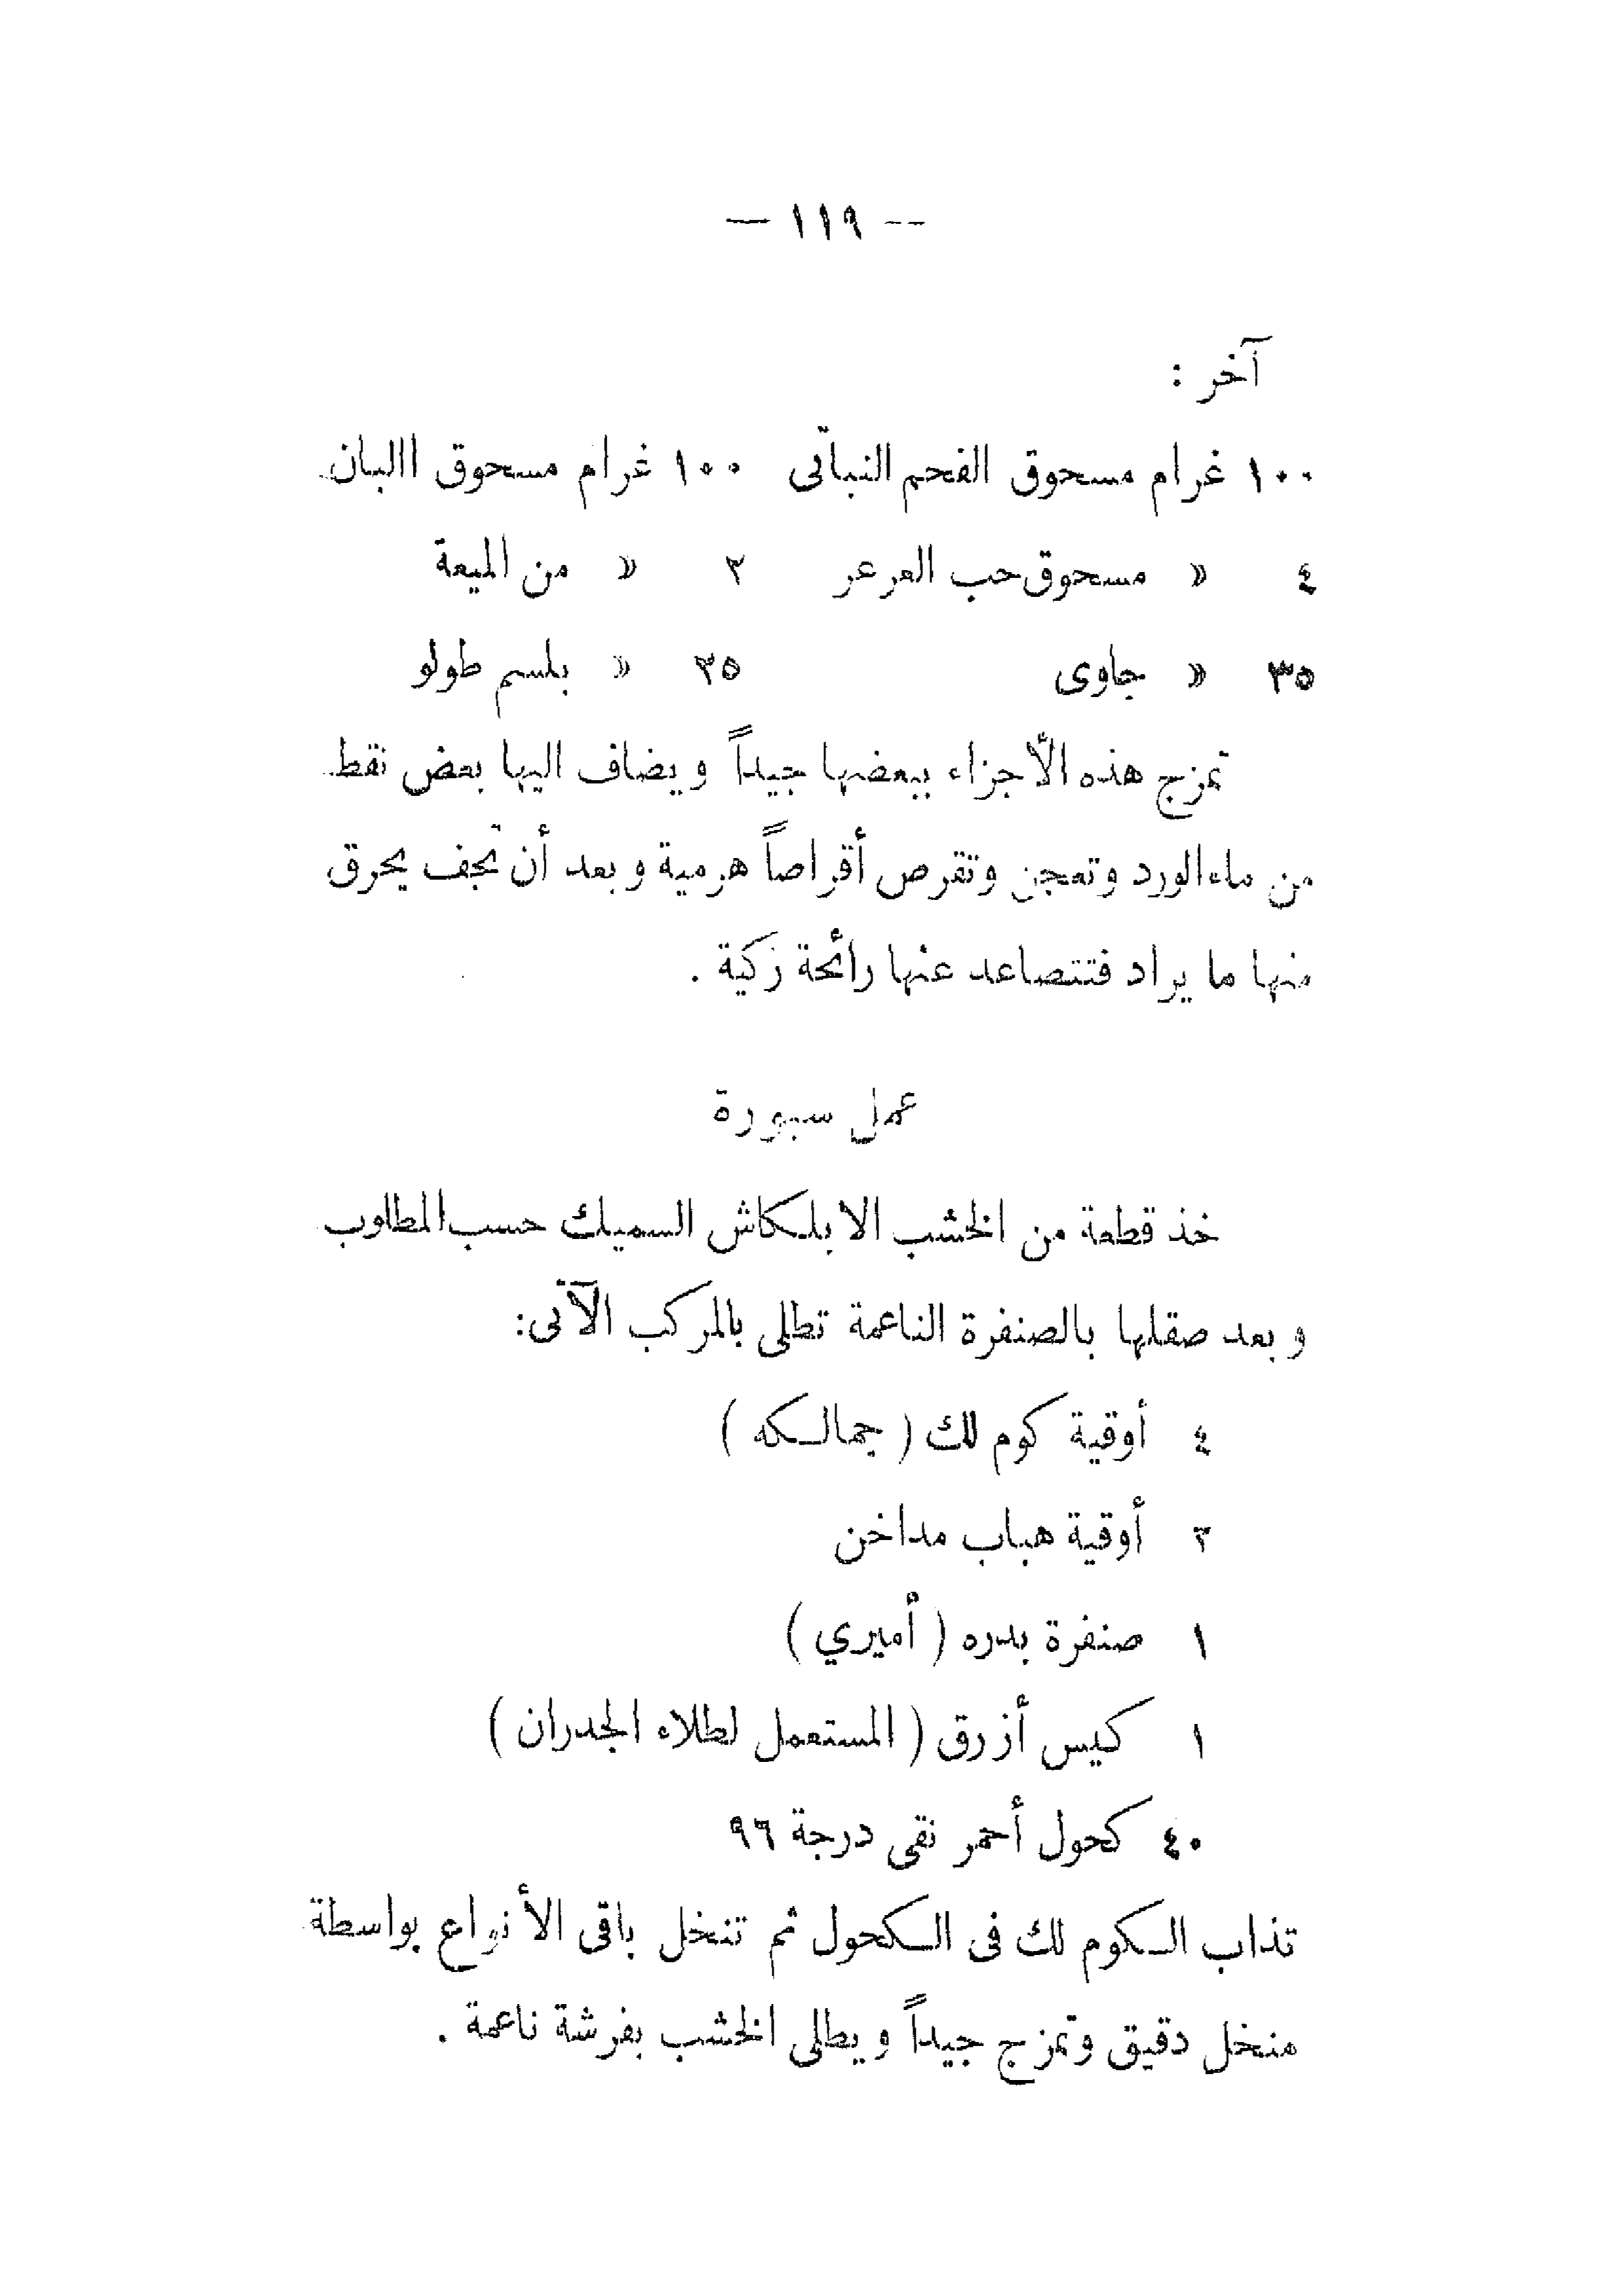 — ١١٩ —
آخر :
١٠٠ غرام مسحوق الفحم النباتى ١٠٠ غرام مسحوق االبان
٤ « مسحوق حب العرعر ٢ « من الميعة
٣٥ « جاوى ٣٥ « بلسم طولو
تمزج هذه الأجزاء ببعضها جيداً ويضاف اليها بعض نقط
من ماء الورد وتعجن وتقرص أقراصاً هرمية وبعد أن تجف يحرق
منها ما يراد فتتصاعد عنها رائحة زكية .
عمل سبورة
خذ قطعة من الخشب الابلكاش السميك حسب المطلوب
وبعد صقلها بالصنفرة الناعمة تطلى بالمركب الآتى:
٤ أوقية كوم لك ( جمالكه )
٣ أوقية هباب مداخن
١ صنفرة بدره ( أميري )
١ كيس أزرق ( المستعمل لطلاء الجدران )
٤٠ كحول أحمر نقى درجة ٩٦
تذاب الكوم لك فى الكحول ثم تنخل باقى الأنواع بواسطة
منخل دقيق وتمزج جيداً ويطلى الخشب بفرشة ناعمة .